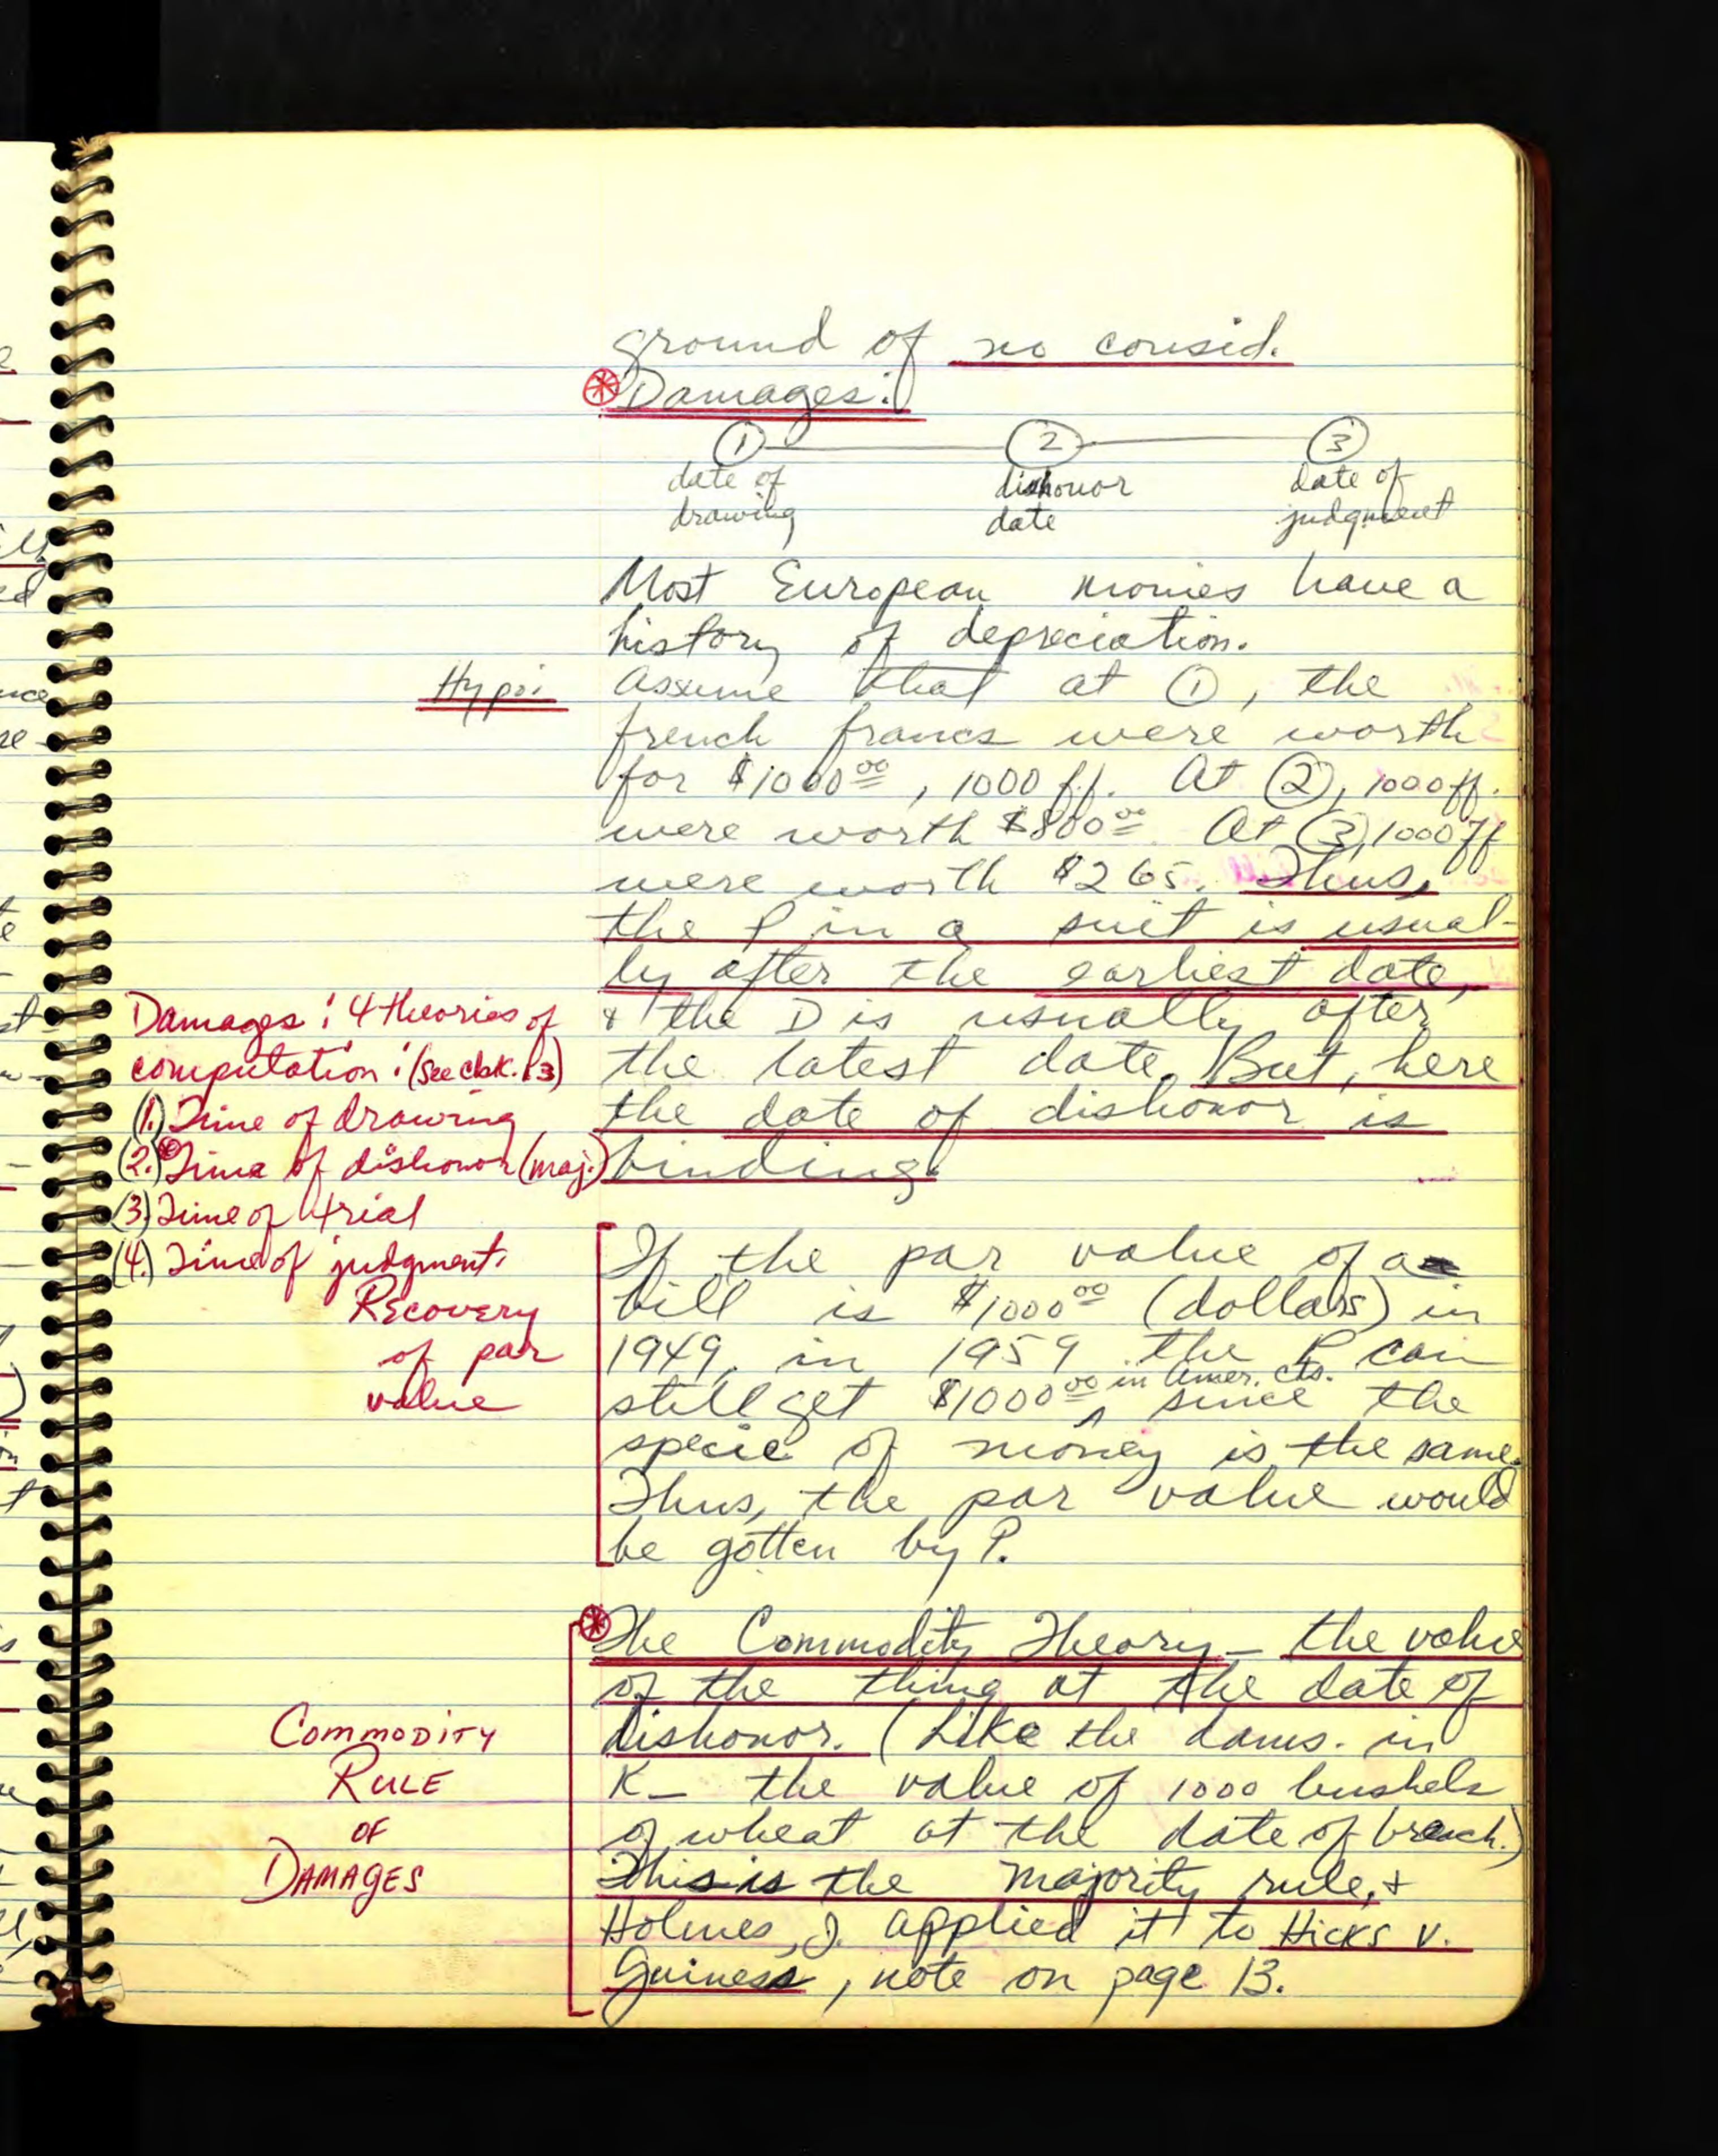 ground of no consid.
⊛ Damages:
① ② ③
date of dishonor date of
drawing date judgment
Most European monies have a
history of depreciation.
Hypo: Assume that at ①, the
french francs were worth
for $1000.00, 1000 ff. At ②, 1000 ff.
were worth $800.00 At ③, 1000 ff
were worth $265. Thus,
the P in a suit is usual-
ly after the earliest date,
& the D is usually after
the latest date. But, here
the date of dishonor is
binding.
Damages: 4 theories of
computation: (See cbk. 13)
(1.) Time of drawing
(2.) Time of dishonor (maj.)
(3.) Time of trial
(4.) Time of judgment.
Recovery
of par
value
If the par value of a
bill is $1000.00 (dollars) in
1949, in 1959 the P can
still get $1000.00 in Amer. cts. since the
specie of money is the same.
Thus, the par value would
be gotten by P.
⊛ The Commodity Theory - the value
of the thing at the date of
dishonor. (Like the dams. in
K - the value of 1000 bushels
of wheat at the date of breach.)
This is the majority rule, &
Holmes, J. applied it to Hicks v.
Guiness, note on page 13.
COMMODITY
RULE
OF
DAMAGES